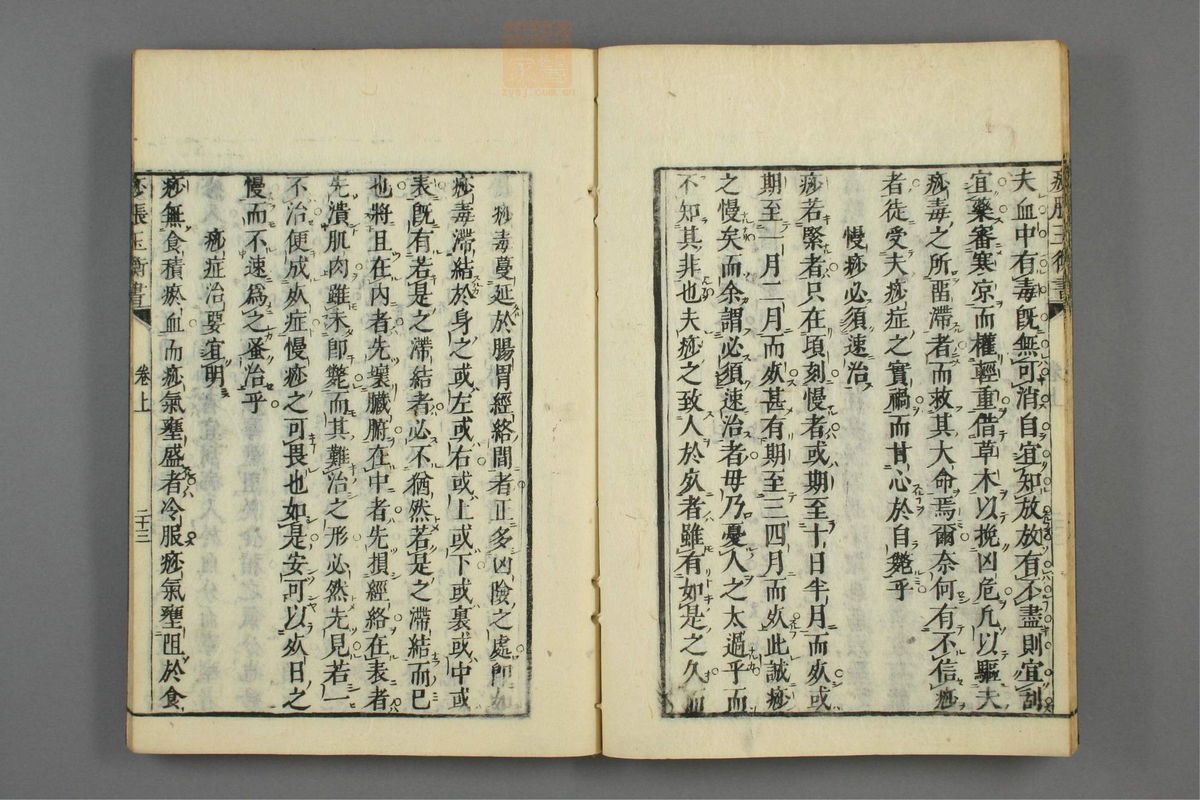 痧脹玉衡書
夫血中有毒既無可消自宜知放放有不盡則宜刮
宜藥審寒凉而權輕重借草木以挽凶危凢以驅夫
痧毒之所畱滯者而救其大命焉爾奈何有不信痧
者徒受夫痧症之實禍而甘心於自斃乎
慢痧必須速治
痧若緊者只在頃刻慢者或期至十日半月而死或
期至一月二月而死甚有期至三四月而死此誠痧
之慢矣而余謂必須速治者毋乃憂人之太過乎而
不知其非也夫痧之致人於死者雖有如是之久而
痧毒蔓延於腸胃經絡間者正多凶險之處即如
痧毒滯結於身之或左或右或上或下或裏或中或
表既有若是之滯結者必不猶然若是之滯結而已
也將且在內者先壞臟腑在中者先損經絡在表者
先潰肌肉雖未即斃而其難治之形必然先見若一
不治便成死症慢痧之可畏也如是安可以死日之
慢而不速爲之蚤治乎
痧症治要宜明
痧無食積瘀血而痧氣壅盛者冷服痧氣壅阻於食
痧脹玉衡書 卷上 二十三